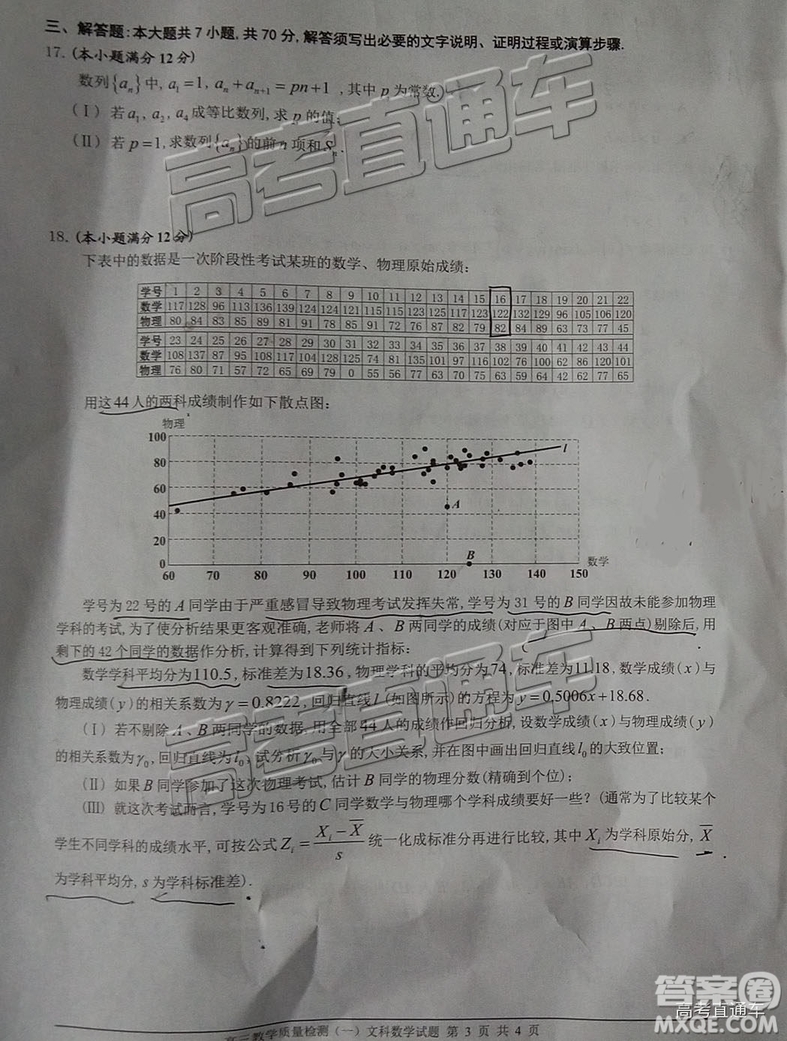 三、解答题:本大题共7小题,共70分,解答须写出必要的文字说明、证明过程或演算步骤.
17.(本小题满分12分)
数列{aₙ}中, a₁=1, aₙ+aₙ₊₁=pn+1 ,其中p为常数.
(Ⅰ)若a₁, a₂, a₄成等比数列,求p的值;
(Ⅱ)若p=1,求数列{aₙ}的前n项和Sₙ.
18.(本小题满分12分)
下表中的数据是一次阶段性考试某班的数学、物理原始成绩:
学号 1 2 3 4 5 6 7 8 9 10 11 12 13 14 15 16 17 18 19 20 21 22
数学 117 128 96 113 136 139 124 124 121 115 115 123 125 117 123 122 132 129 96 105 106 120
物理 80 84 83 85 89 81 91 78 85 91 72 76 87 82 79 82 84 89 63 73 77 45
学号 23 24 25 26 27 28 29 30 31 32 33 34 35 36 37 38 39 40 41 42 43 44
数学 108 137 87 95 108 117 104 128 125 74 81 135 101 97 116 102 76 100 62 86 120 101
物理 76 80 71 57 72 65 69 79 0 55 56 77 63 70 75 63 59 64 42 62 77 65
用这44人的两科成绩制作如下散点图:
物理
100
80
60
40
20
0
l
A
B
数学
60 70 80 90 100 110 120 130 140 150
学号为22号的A同学由于严重感冒导致物理考试发挥失常,学号为31号的B同学因故未能参加物理
学科的考试,为了使分析结果更客观准确,老师将A、B两同学的成绩(对应于图中A、B两点)剔除后,用
剩下的42个同学的数据作分析,计算得到下列统计指标:
数学学科平均分为110.5,标准差为18.36,物理学科的平均分为74,标准差为11.18,数学成绩(x)与
物理成绩(y)的相关系数为γ=0.8222,回归直线l(如图所示)的方程为y=0.5006x+18.68.
(Ⅰ)若不剔除A、B两同学的数据,用全部44人的成绩作回归分析,设数学成绩(x)与物理成绩(y)
的相关系数为γ₀,回归直线为l₀,试分析γ₀与γ的大小关系,并在图中画出回归直线l₀的大致位置;
(Ⅱ)如果B同学参加了这次物理考试,估计B同学的物理分数(精确到个位);
(Ⅲ)就这次考试而言,学号为16号的C同学数学与物理哪个学科成绩要好一些?(通常为了比较某个
学生不同学科的成绩水平,可按公式Zᵢ=(Xᵢ-X̅)/s统一化成标准分再进行比较,其中Xᵢ为学科原始分,X̅
为学科平均分,s为学科标准差).
高三教学质量检测(一)文科数学试题 第3页 共4页
高考直通车
高考直通车
答案圈
高考直通车
MXQE.COM